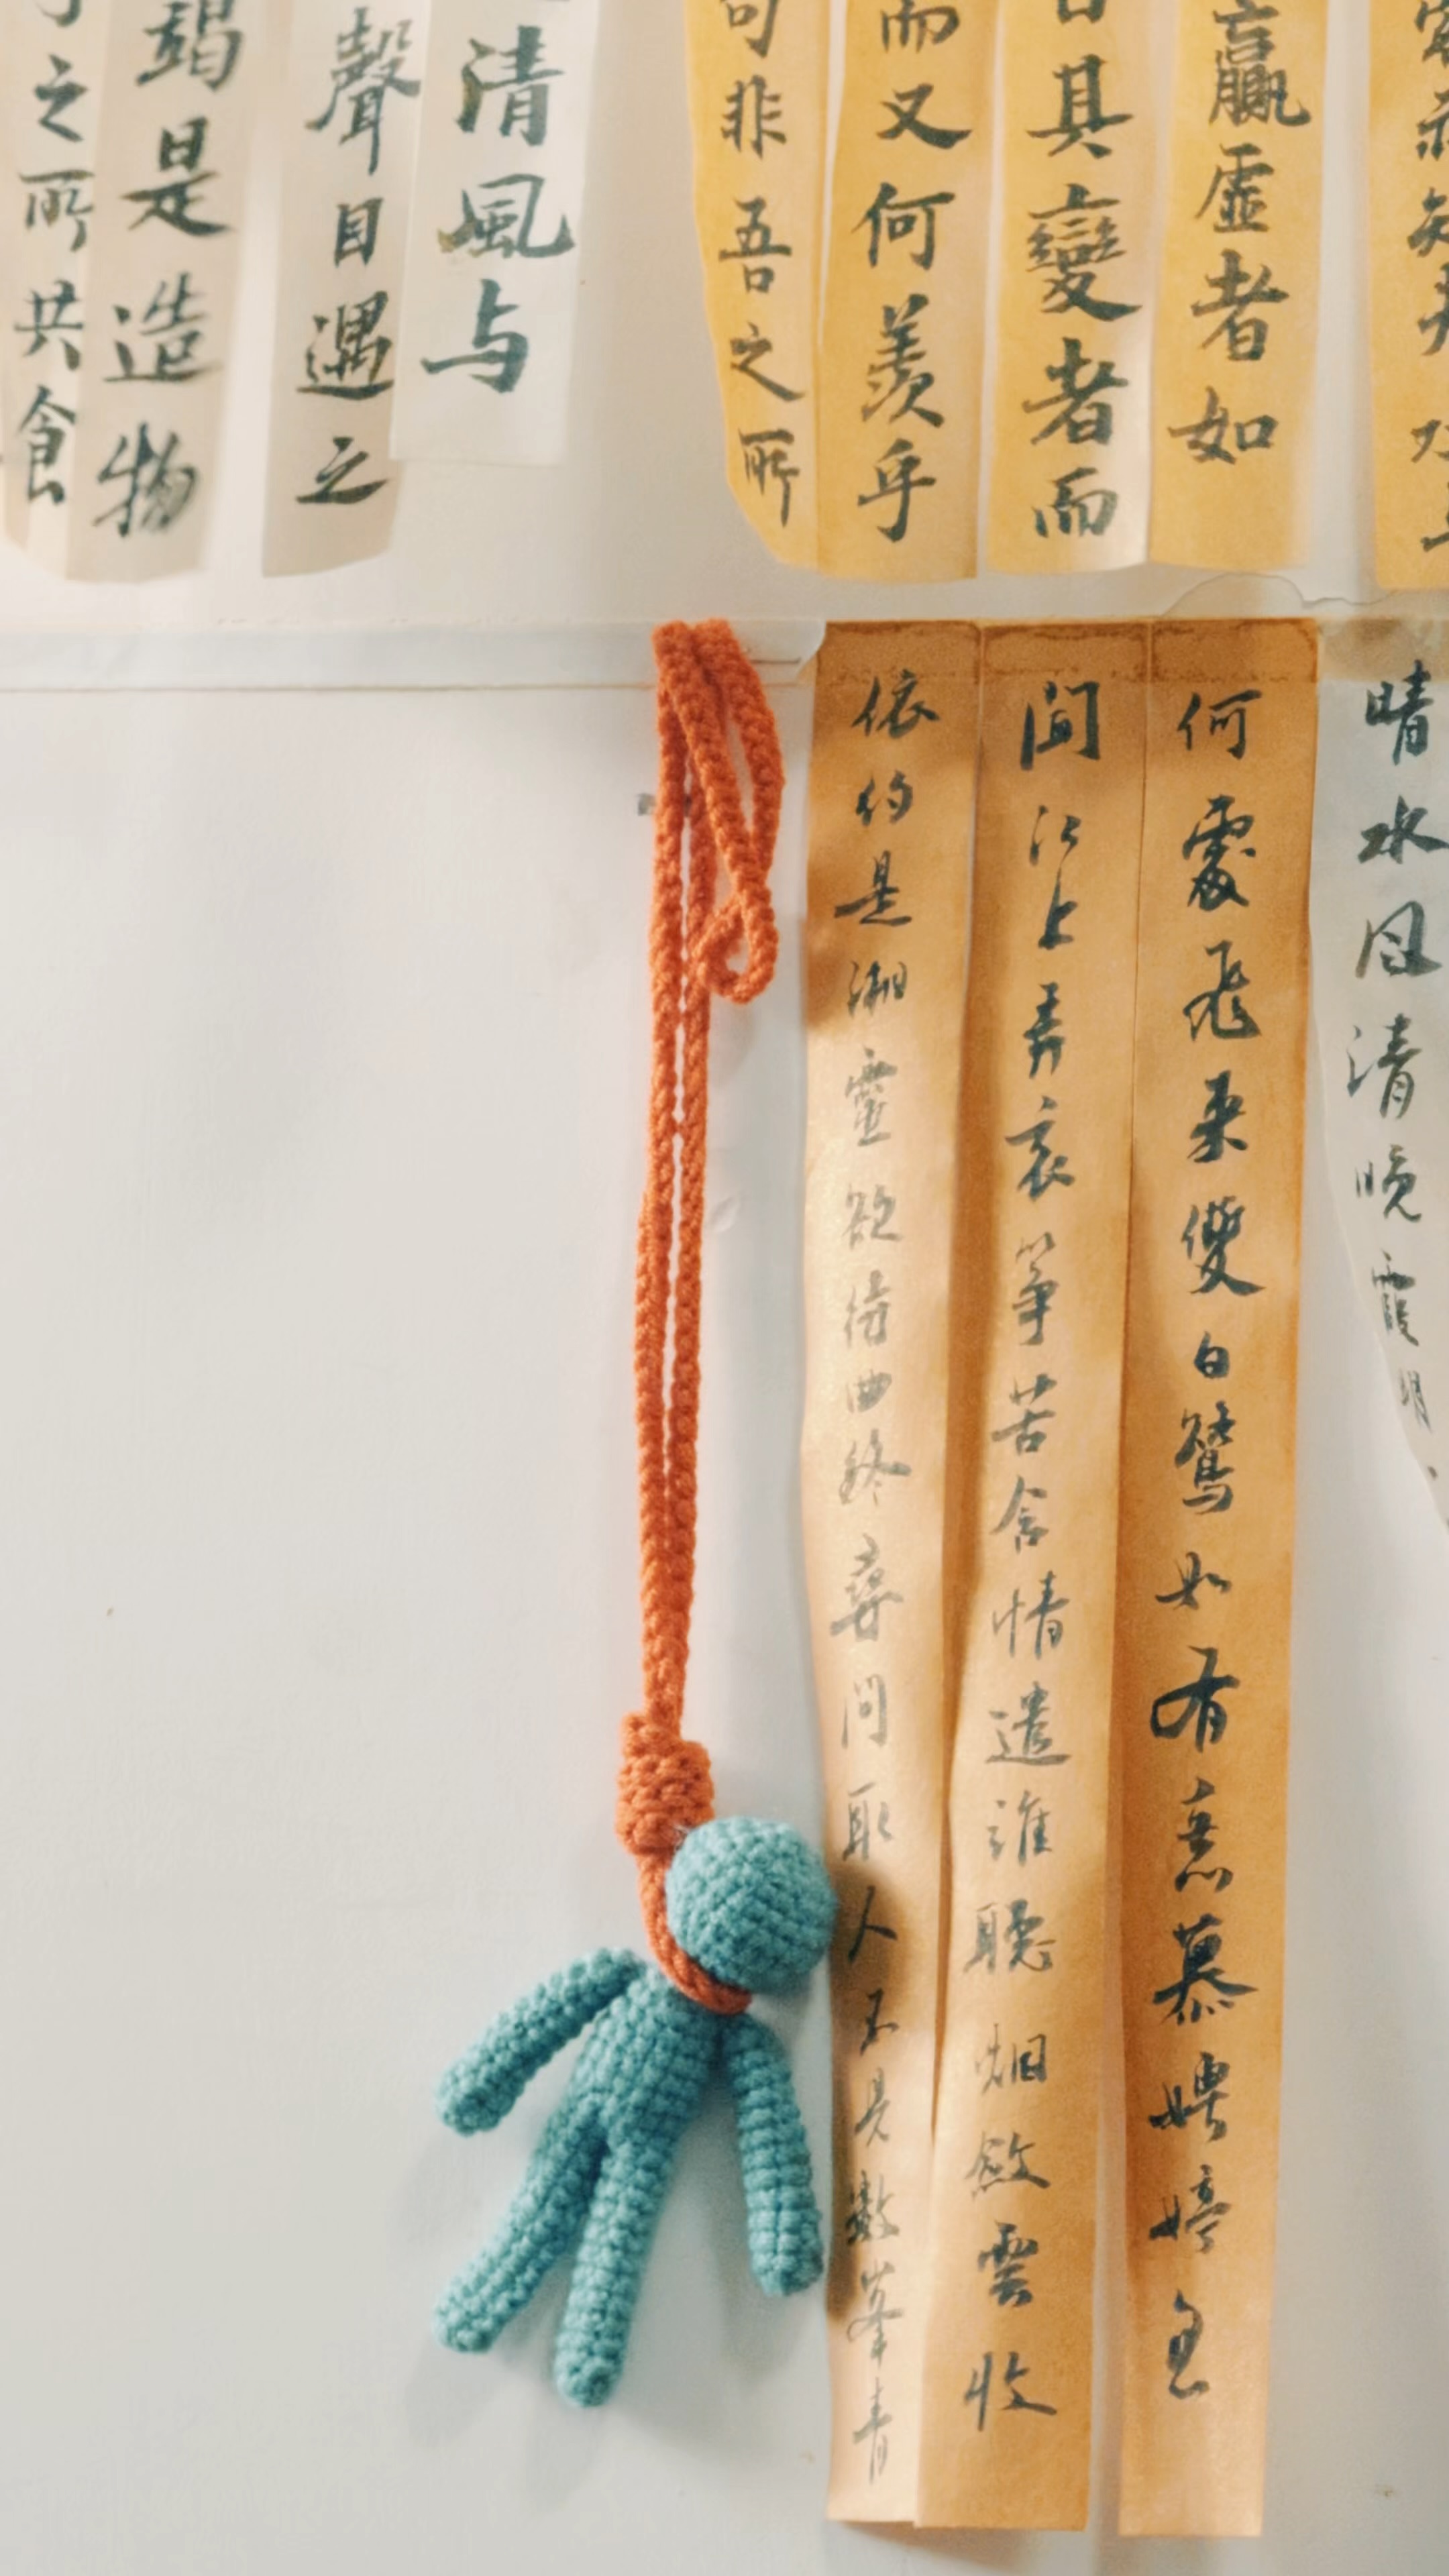 贏虛者如
其變者而
而又何羨乎
非吾之所
清風与
聲目遇之
竭是造物
之所共食
晴水风清晚霞明、
何處飛来雙白鷺如有意慕娉婷忽
聞江上弄哀箏苦含情遣誰聽烟斂雲收
依約是湘靈欲待曲終尋問取人不見數峯青